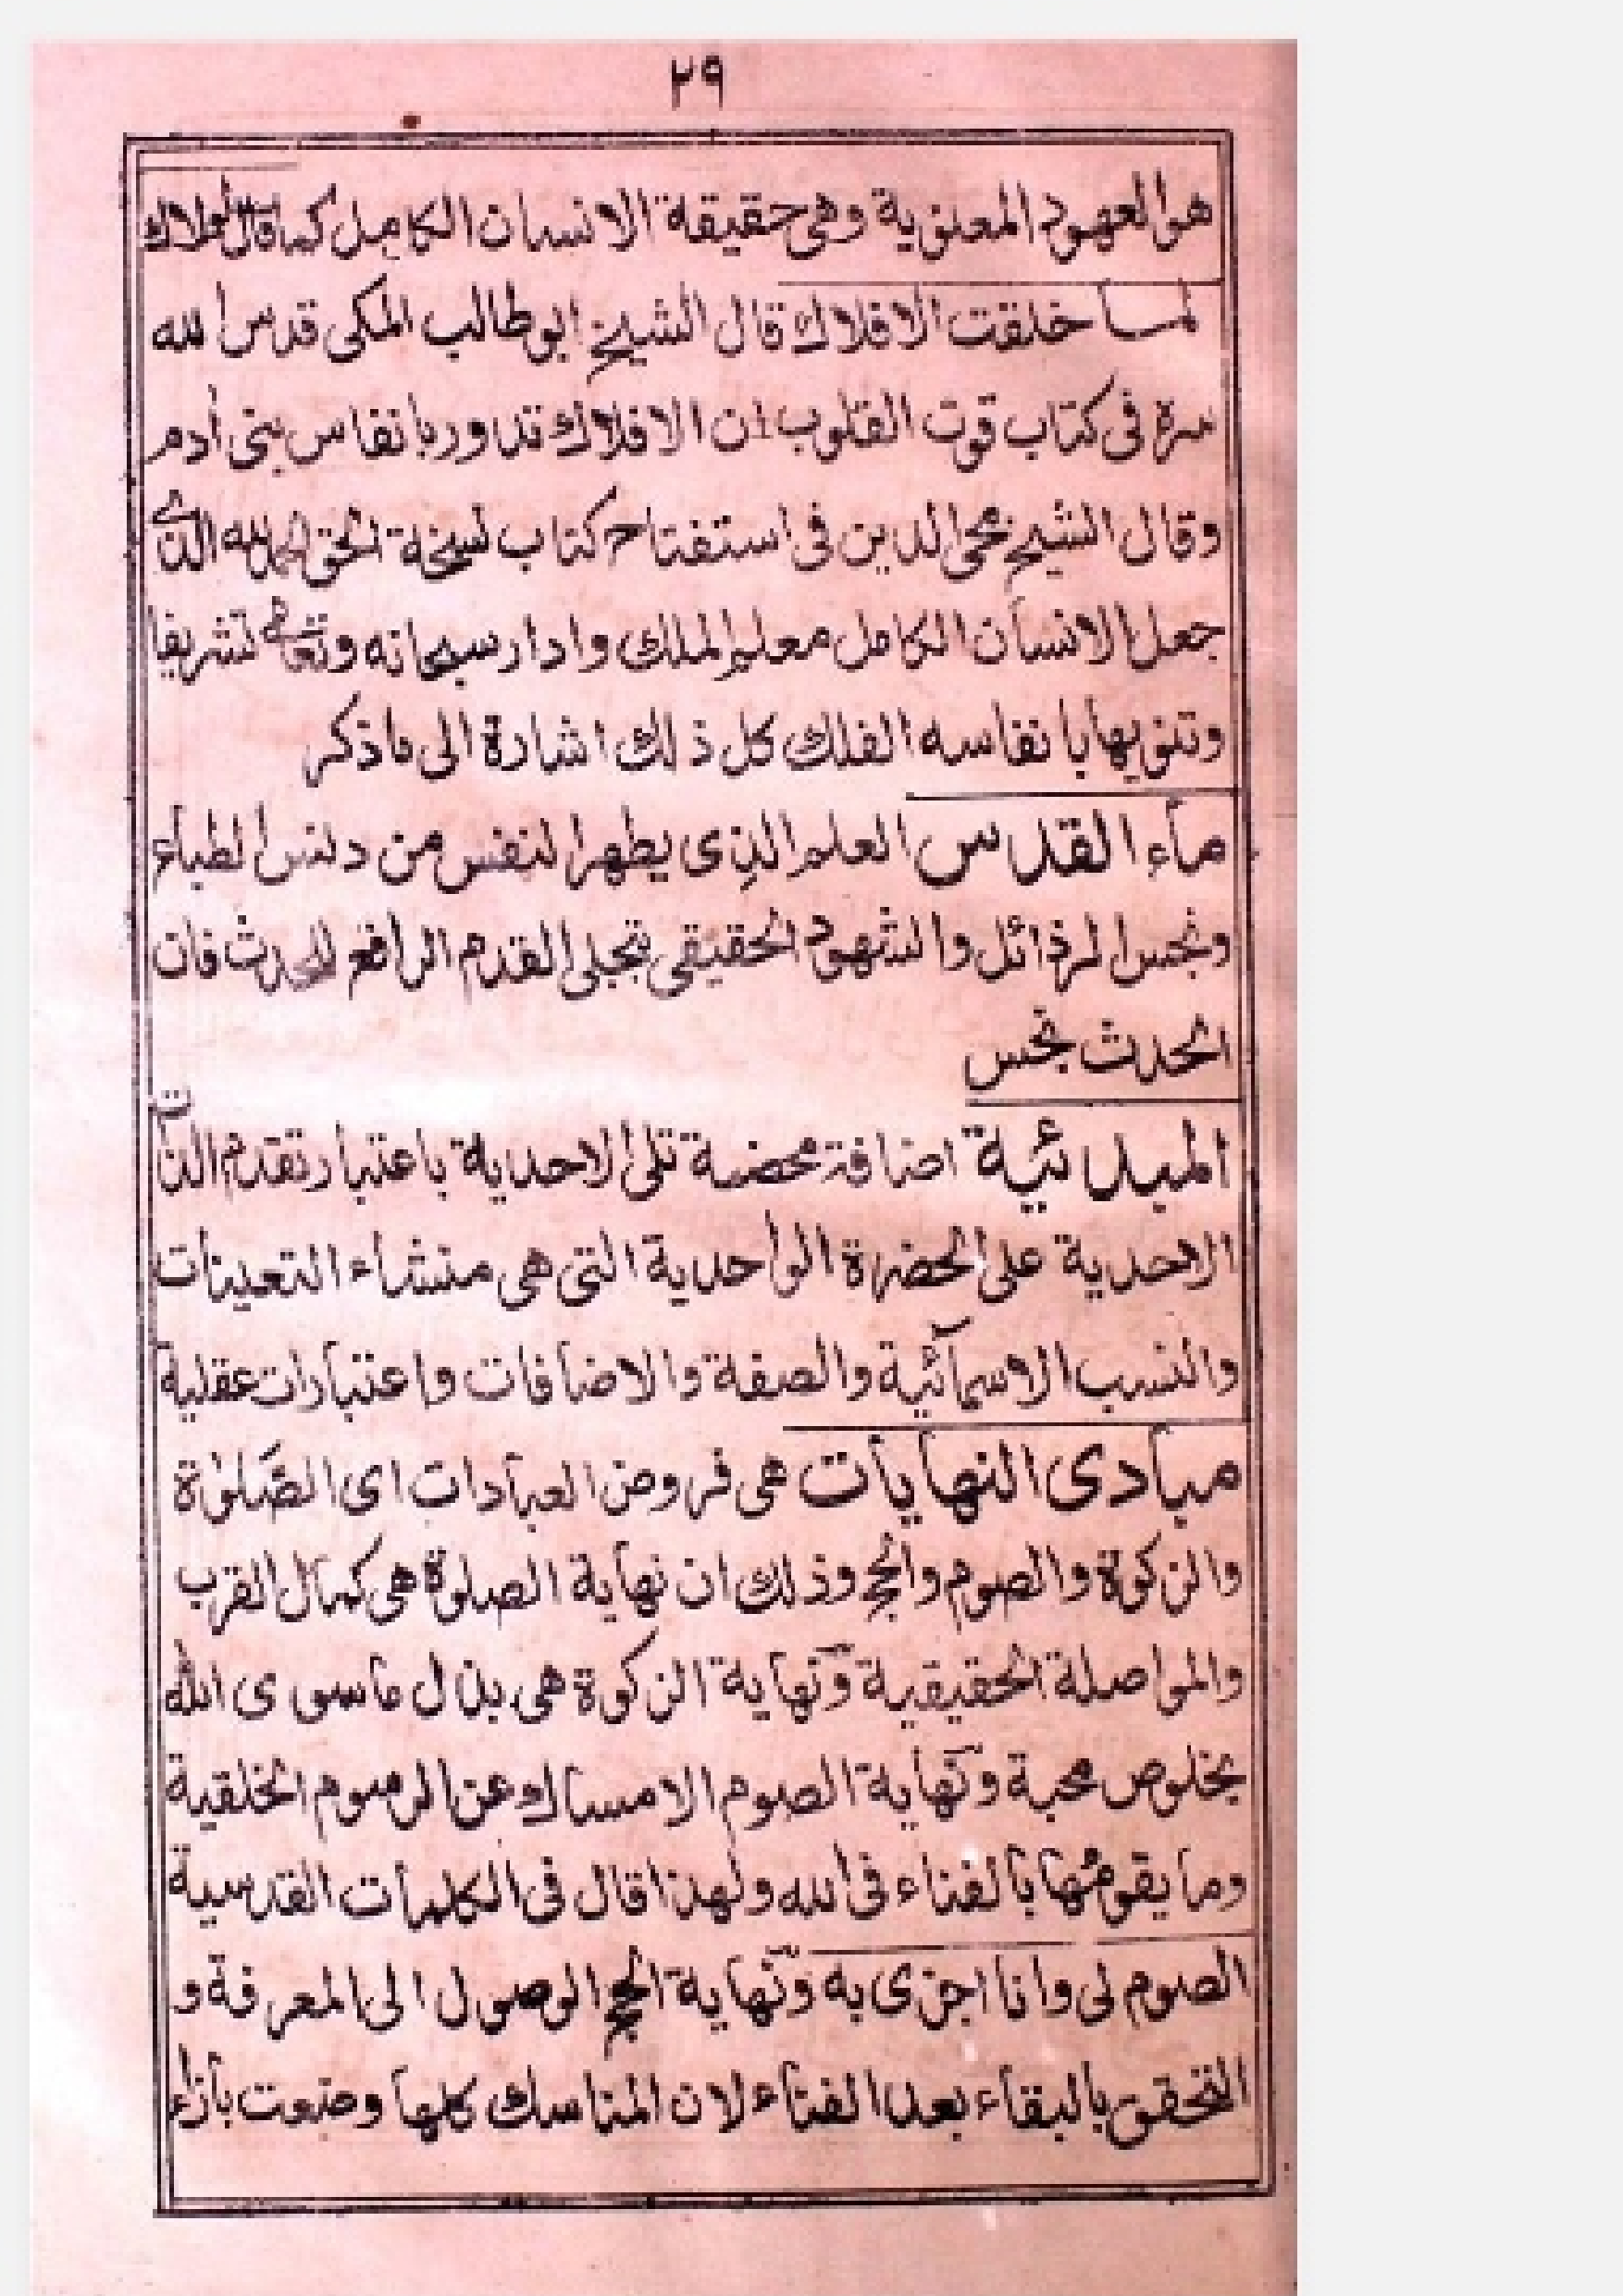 ٢٩
هو العهود المعنوية وهى حقيقة الانسان الكامل كما قال لولاك
لما خلقت الافلاك قال الشيخ ابو طالب المكى قدس الله
سره فى كتاب قوت القلوب ان الافلاك تدا ور بانفاس بنى أدم
وقال الشيخ محى الدين فى استفتاح كتاب نسخة الحق الحمد لله الذى
جعل الانسان الكامل معلم الملك وادار سبحانه وتعالى تشريفا
وتنويها بانفاسه الفلك كل ذلك اشارة الى ما ذكر
ماء القدس العلم الذى يطهر النفس من دنس الطباء
ونجس الرذائل والشهود الحقيقى بتجلى القدم الرافع للحدث فان
الحدث نجس
المبدائية اضافة محضة تلى الاحدية باعتبار تقدم الذات
الاحدية على الحضرة الواحدية التى هى منشاء التعينات
والنسب الاسمآئية والصفة والاضافات واعتبارات عقلية
مبادى النهايات هى فروض العبادات اى الصلوة
والزكوة والصوم والحج وذلك ان نهاية الصلوة هى كمال القرب
والمواصلة الحقيقية ونهاية الزكوة هى بذل ما سوى الله
بخلوص محبة ونهاية الصوم الامساك عن الرسوم الخلقية
وما يقومها بالفناء فى الله ولهذا قال فى الكلمات القدسية
الصوم لى وانا اجزى به ونهاية الحج الوصول الى المعرفة و
التحقق بالبقاء بعد الفناء لان المناسك كلها وضعت بازاء